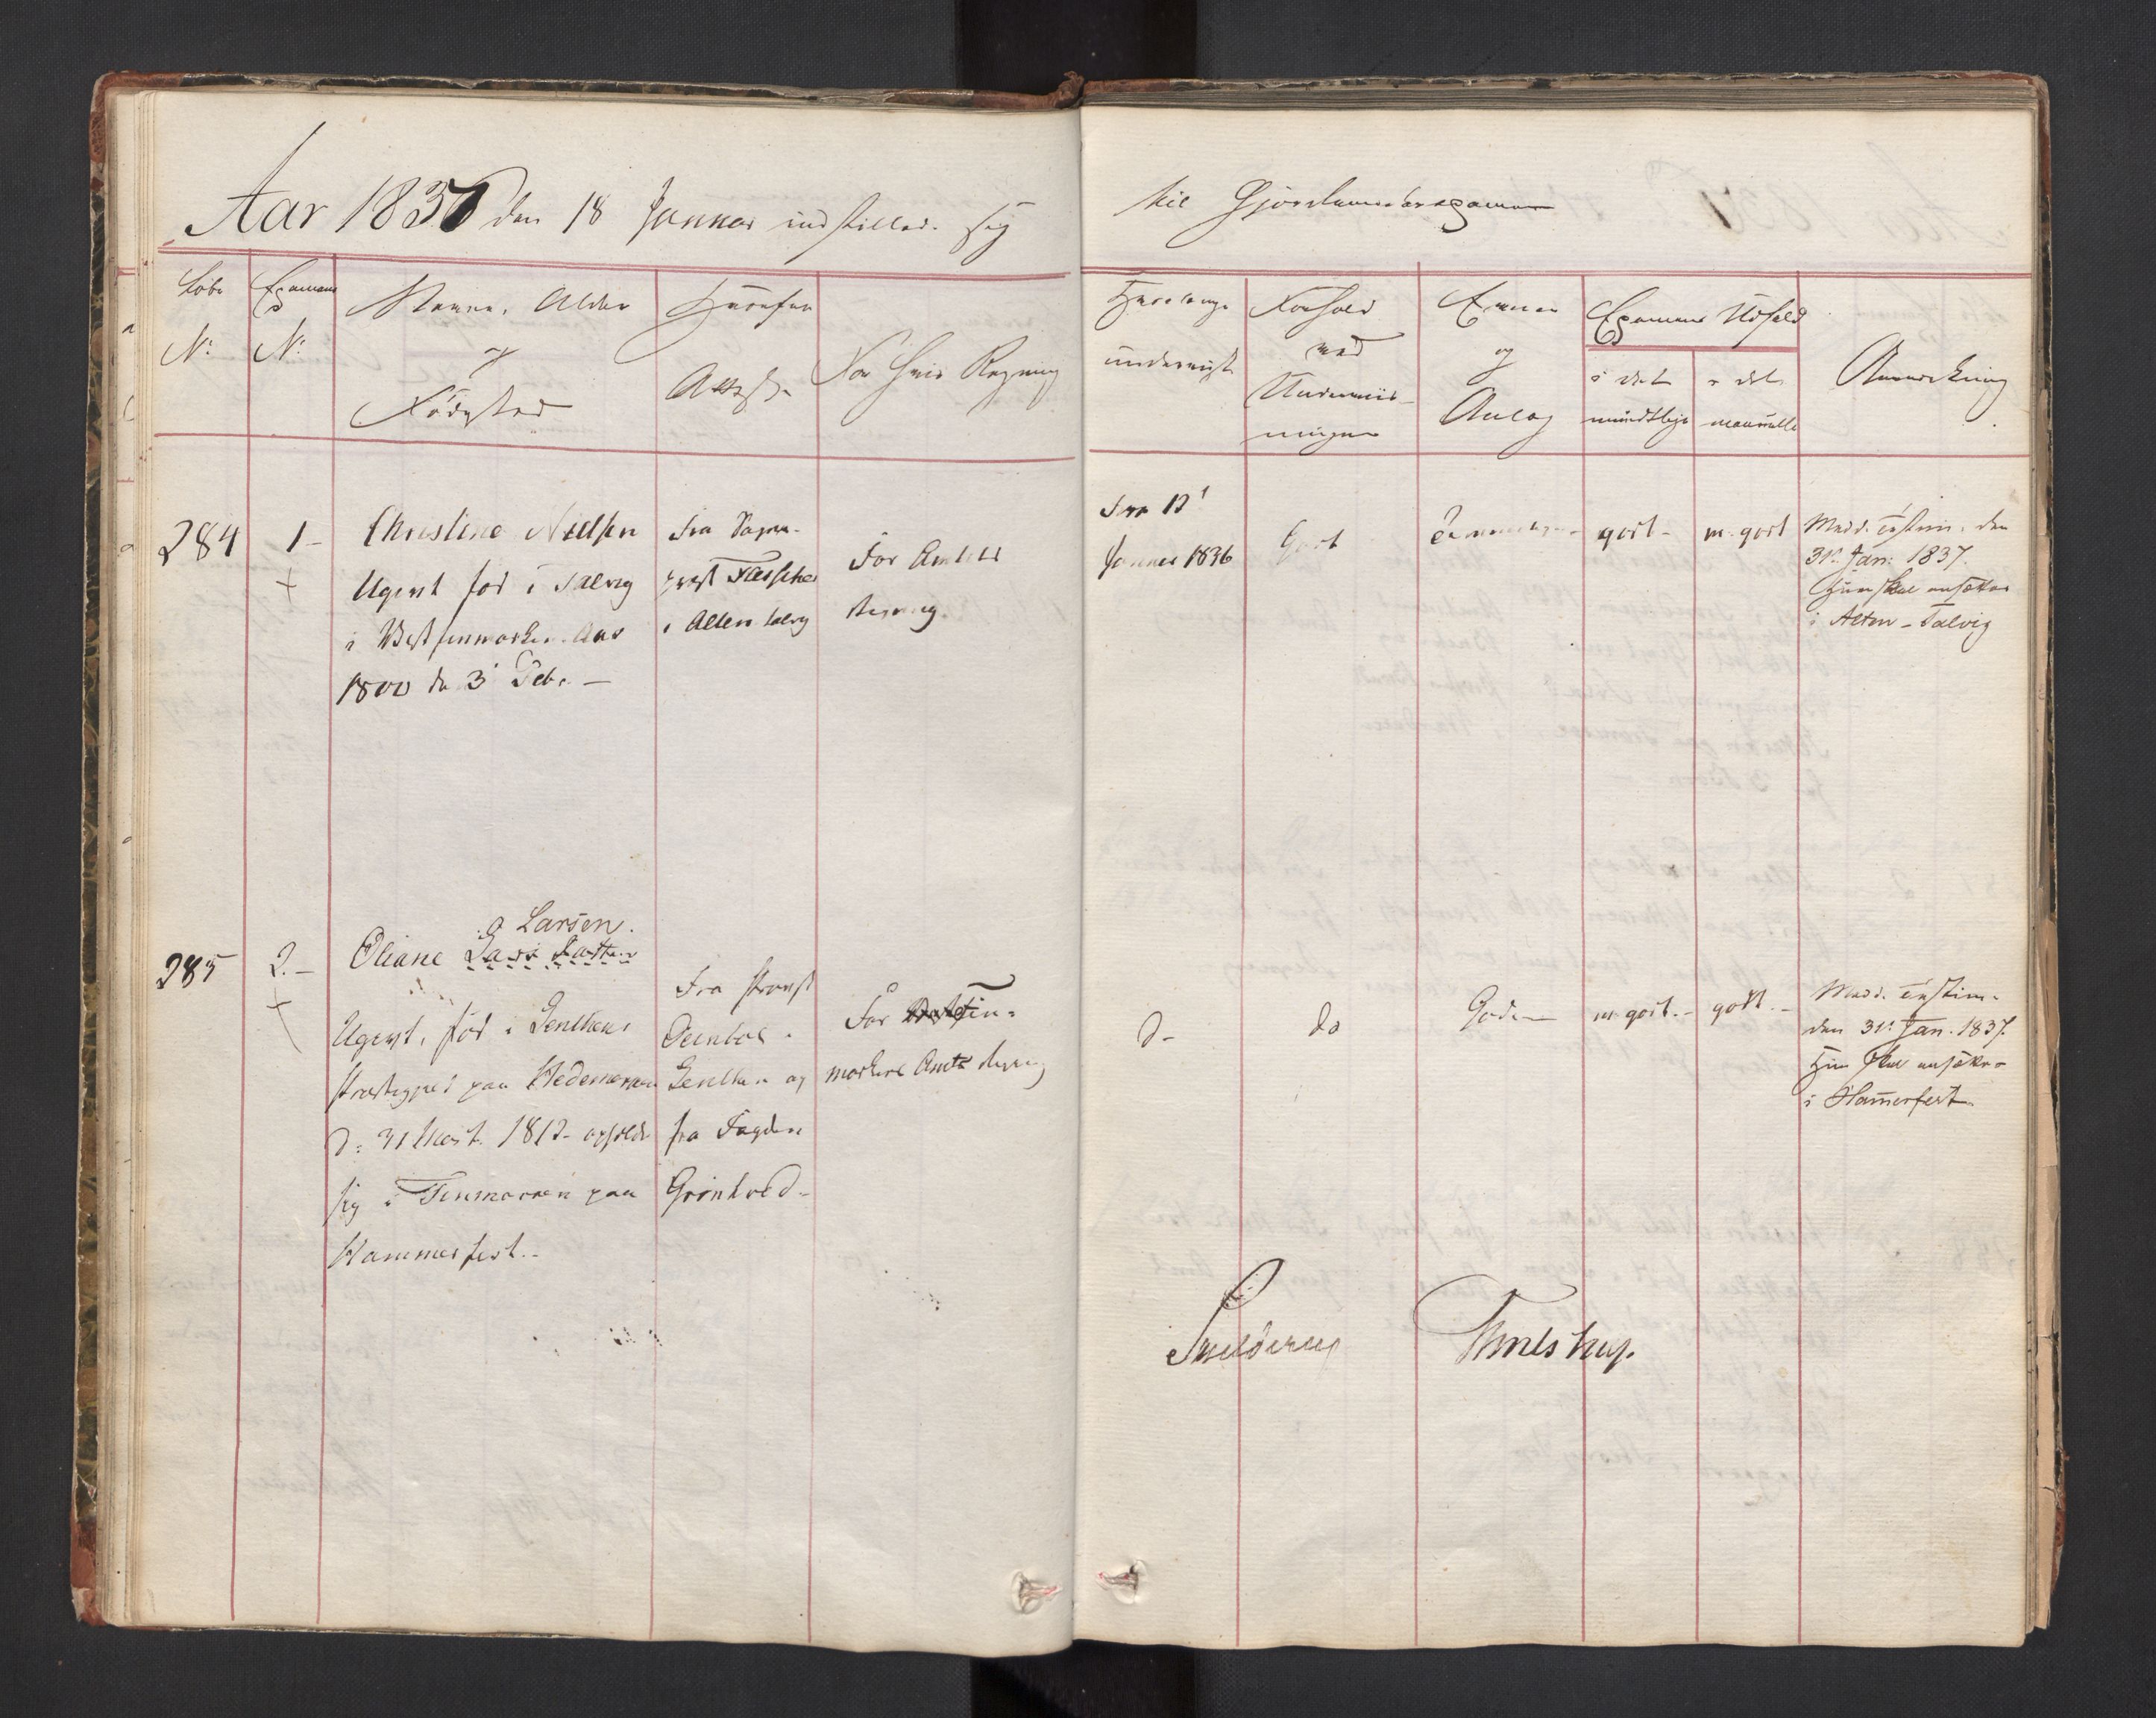 Aar 1836 den 18 Januar indstillede sig
til Gjordemoderexamen
Løbe
No
Examens
No
Navn, Alder
og
Fødested
Hvorfra
Attest
For hvis Regning
Hvorlænge
underviist
Forhold
ved
Underviis-
ningen
Evner
og
Anlæg
Examens Udfald
i det
mundtlige
i det
manuelle
Anmærkning
284
1-
Christine Nielsen
Ugivt fød i Talvig
i Vestfinmarken Aar
1800 d. 3 Febr. –
fra Sogne-
præst
i Alten Talvig
For Amtets
Regning.
Fra 12
Januar 1836
Godt
godt -
m. godt
Medd. Testim. den
31te Jan: 1837.
Hun skal ansættes
i Alten - Talvig
285
2.-
Larsen.
Oliane
Ugivt, fød i
Præstegjeld paa Hedemarken
d: 31 1812 - opholdt
sig i Finmarken paa
Hammerfest.-
Fra Provst
og
fra Fogden
For Fin-
markens Amts Regning
d-
do
Gode
m. godt.-
godt.-
Medd. Testim.
den 31te Jan. 1837.
Hun skal ansættes
i Hammerfest
Thulstrup.